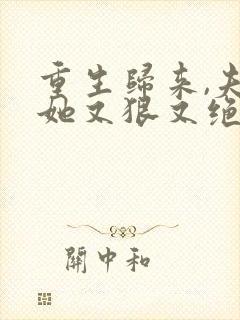 重生歸来,夫
她又狠又绝
關中和